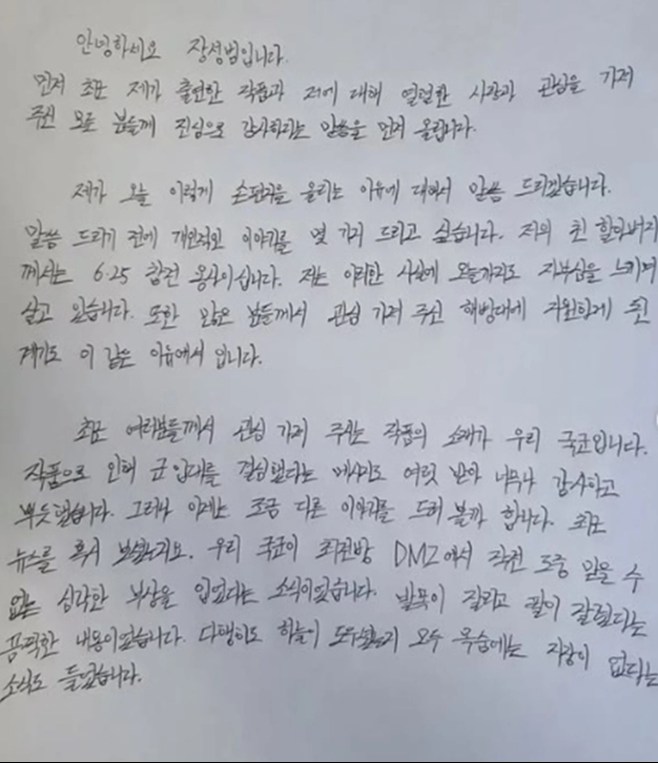 안녕하세요 장성범입니다.
먼저 최근 제가 출연한 작품과 저에 대해 열렬한 사랑과 관심을 가져
주신 모든 분들께 진심으로 감사하다는 말씀을 먼저 올립니다.
제가 오늘 이렇게 손편지를 올리는 이유에 대해서 말씀 드리겠습니다.
말씀 드리기 전에 개인적인 이야기를 몇 가지 드리고 싶습니다. 저의 친 할아버지
께서는 6.25 참전 용사이십니다. 저는 이러한 사실에 오늘까지도 자부심을 느끼며
살고 있습니다. 또한 많은 분들께서 관심 가져 주신 해병대에 지원하게 된
계기도 이 같은 이유에서 입니다.
최근 여러분들께서 관심 가져 주시는 작품의 소재가 우리 국군입니다.
작품으로 인해 군 입대를 결심했다는 메시지도 여럿 받아 너무나 감사하고
뿌듯했습니다. 그러나 이제는 조금 다른 이야기를 드려 볼까 합니다. 최근
뉴스를 혹시 보셨는지요. 우리 국군이 최전방 DMZ에서 작전 도중 믿을 수
없는 심각한 부상을 입었다는 소식이었습니다. 발목이 잘리고 팔이 잘렸다는
끔찍한 내용이었습니다. 다행히도 하늘이 도우셨는지 모두 목숨에는 지장이 없다는
소식도 들었습니다.